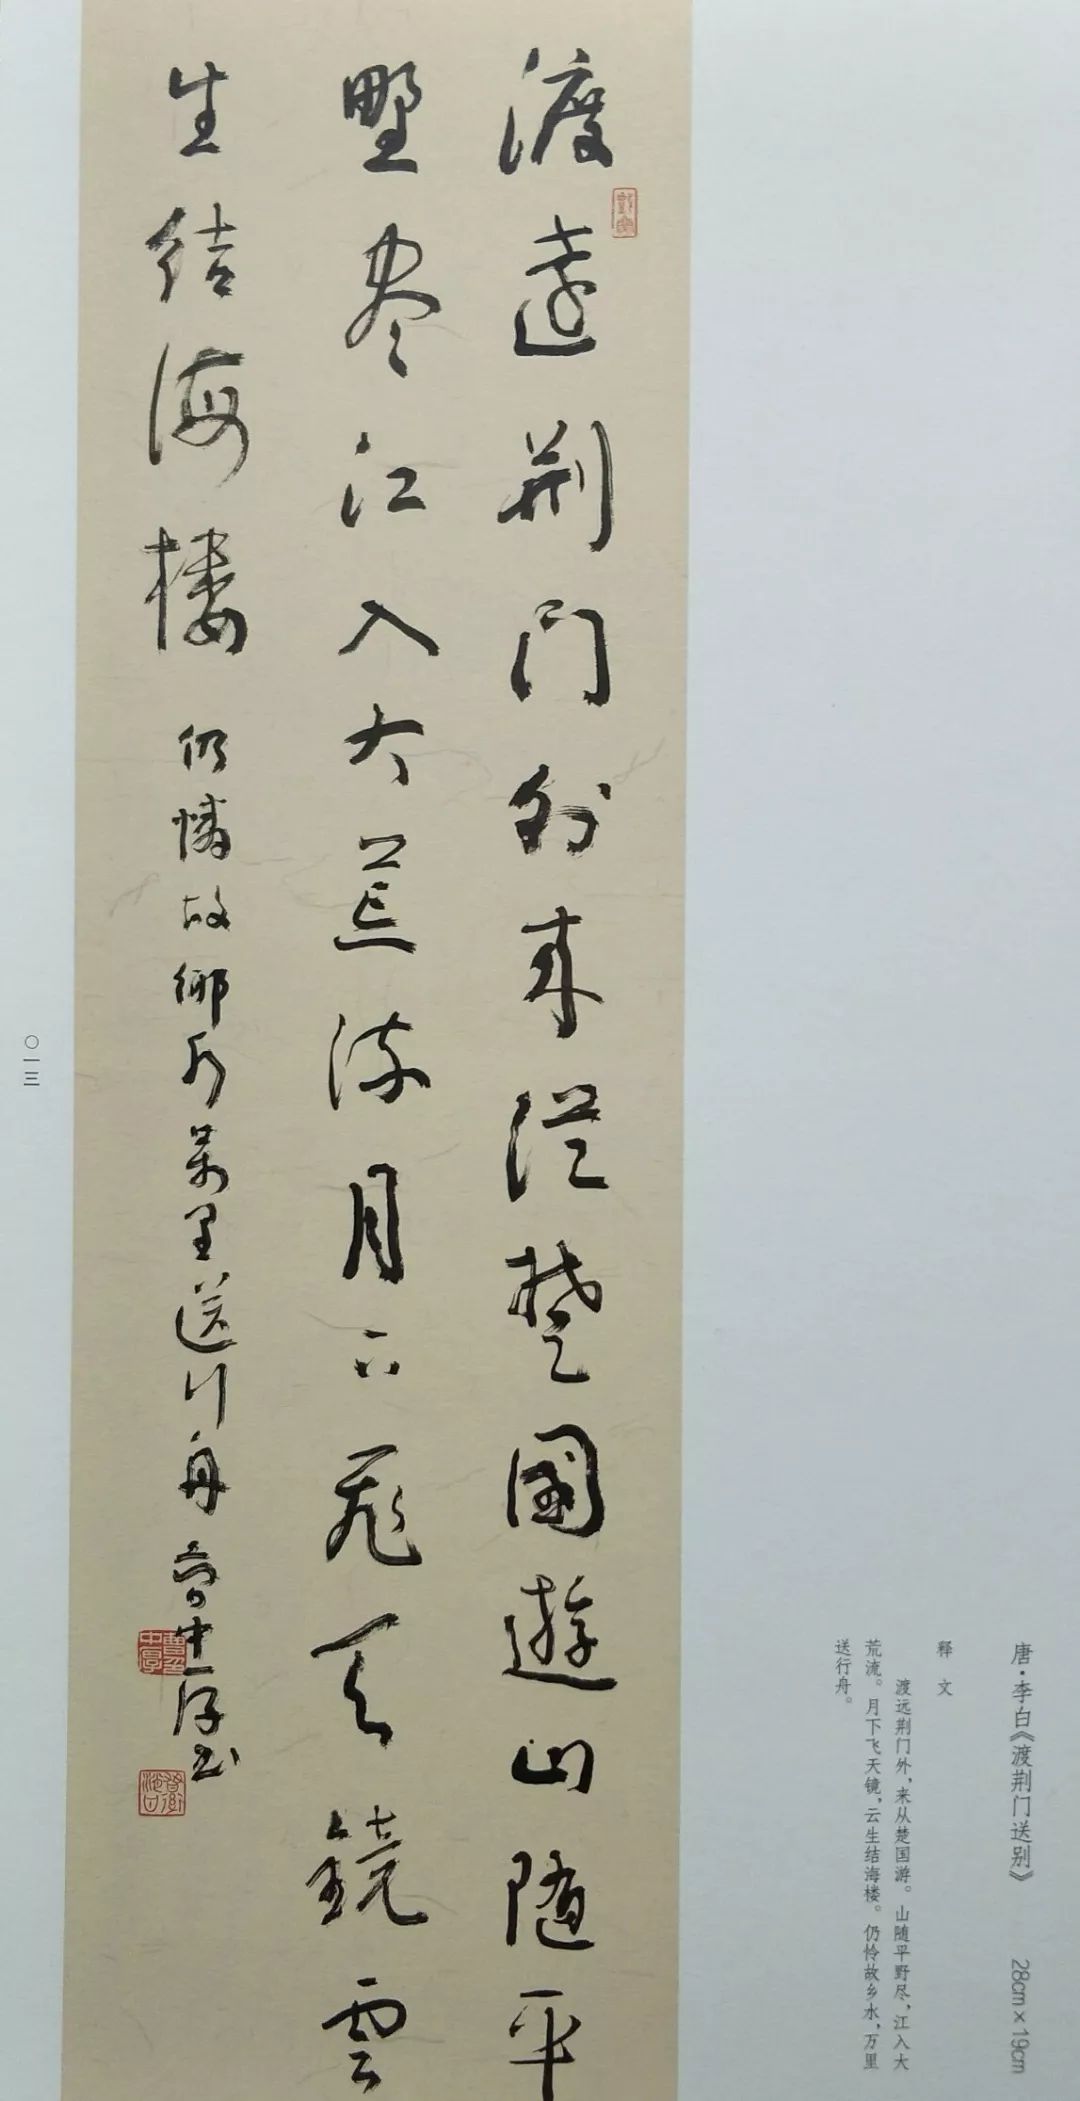 唐·李白《渡荆门送别》 28cm×19cm
释文
渡远荆门外，来从楚国游。山随平野尽，江入大
荒流。月下飞天镜，云生结海楼。仍怜故乡水，万里
送行舟。
渡遠荆门外来從楚國遊山随平
野尽江入大荒流月下飛天鏡雲
生结海楼仍憐故鄉水萬里送行舟 曹中厚书
〇一三